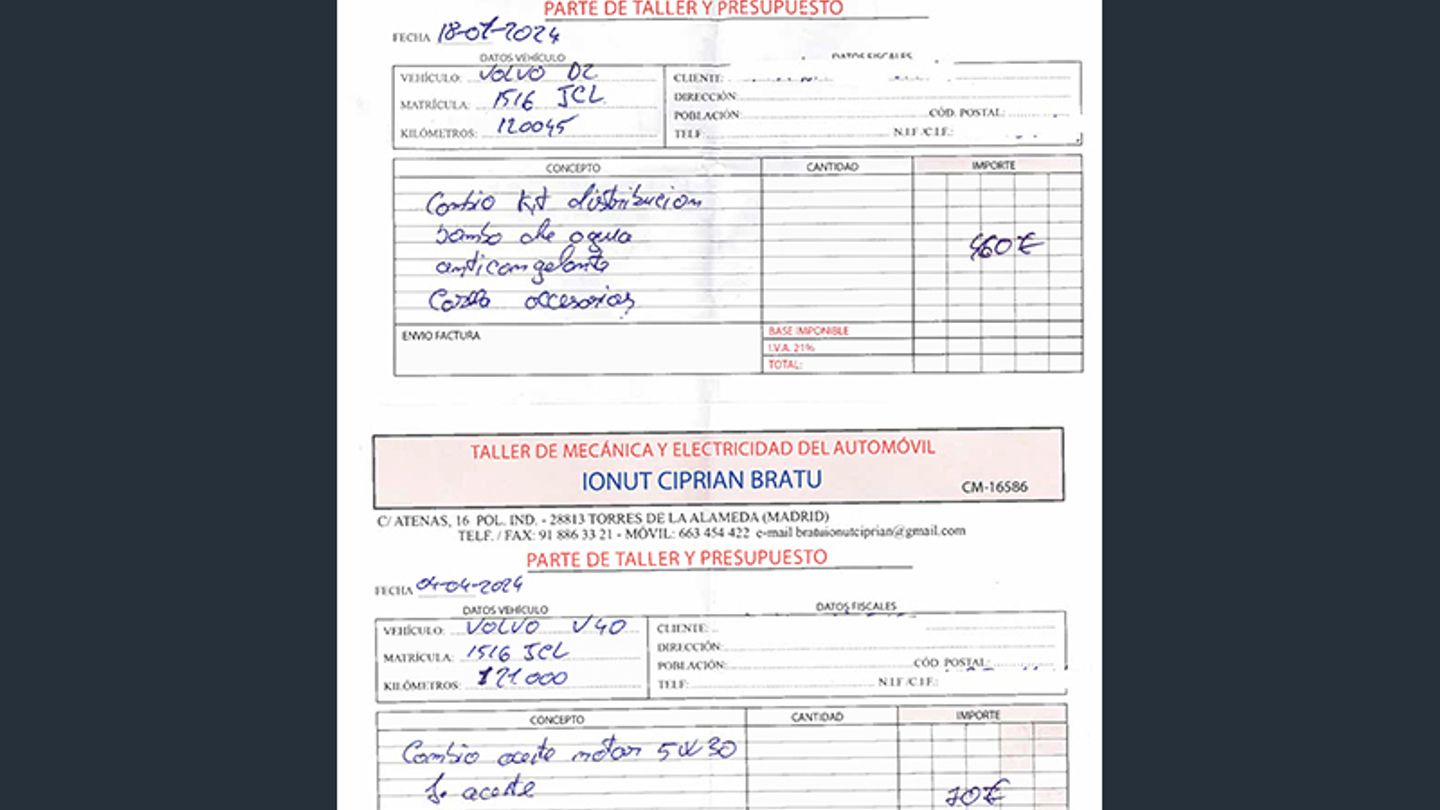 PARTE DE TALLER Y PRESUPUESTO
FECHA 18-01-2024
DATOS VEHÍCULO
DATOS FISCALES
VEHÍCULO: VOLVO D2
CLIENTE:
MATRÍCULA: 1516 JCL
DIRECCIÓN:
POBLACIÓN: CÓD. POSTAL:
KILÓMETROS: 120045
TELF: N.I.F./C.I.F.:
CONCEPTO CANTIDAD IMPORTE
Cambio kit distribucion
bomba de agua
460€
anticongelante
Correa accesorios
ENVIO FACTURA
BASE IMPONIBLE
I.V.A. 21%
TOTAL:
TALLER DE MECÁNICA Y ELECTRICIDAD DEL AUTOMÓVIL
IONUT CIPRIAN BRATU
CM-16586
C/ ATENAS, 16 POL. IND. - 28813 TORRES DE LA ALAMEDA (MADRID)
TELF. / FAX: 91 886 33 21 - MÓVIL: 663 454 422 e-mail bratuionutciprian@gmail.com
PARTE DE TALLER Y PRESUPUESTO
FECHA 04-04-2024
DATOS VEHÍCULO
DATOS FISCALES
VEHÍCULO: VOLVO V40
CLIENTE:
MATRÍCULA: 1516 JCL
DIRECCIÓN:
POBLACIÓN: CÓD. POSTAL:
KILÓMETROS: 121000
TELF: N.I.F./C.I.F.:
CONCEPTO CANTIDAD IMPORTE
Cambio aceite motor 5W30
aceite
70€